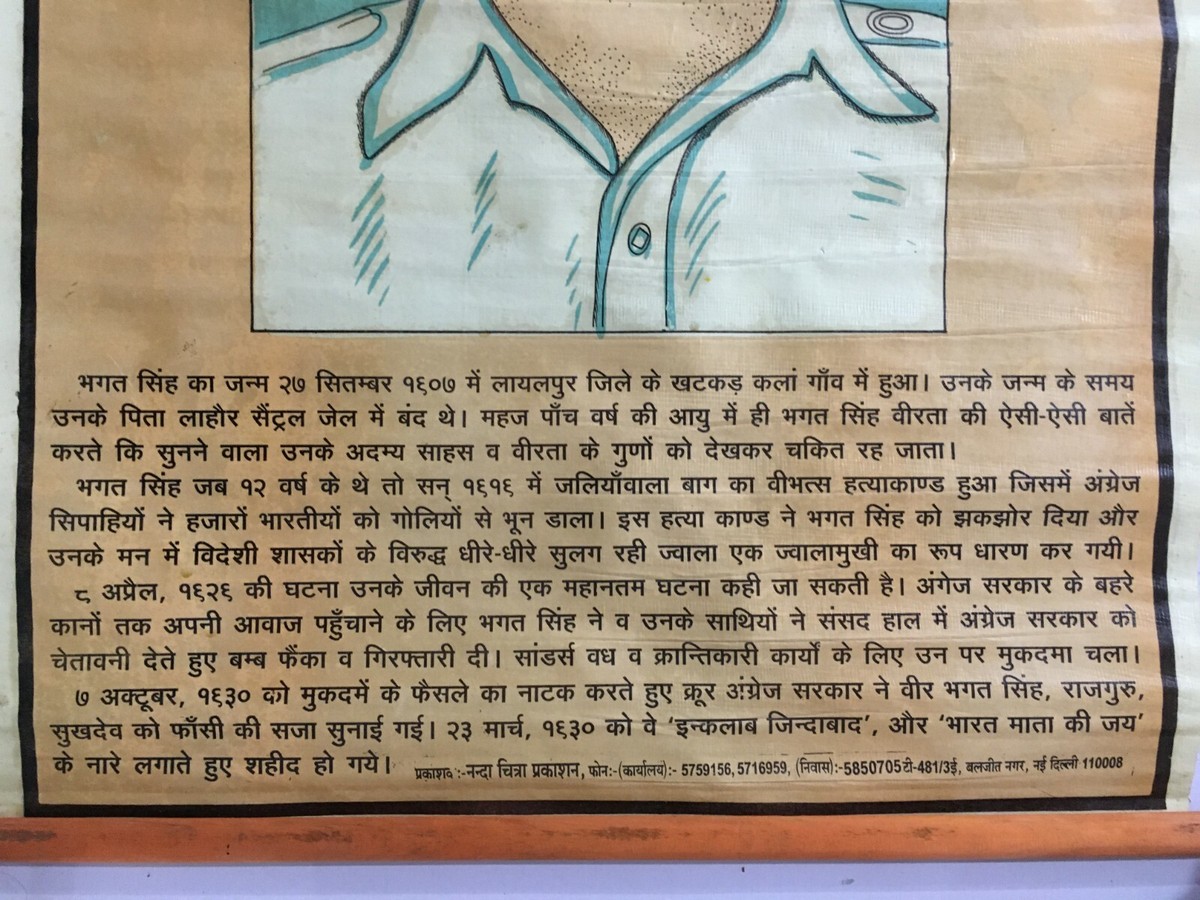 भगत सिंह का जन्म २७ सितम्बर १९०७ में लायलपुर जिले के खटकड़ कलां गाँव में हुआ। उनके जन्म के समय
उनके पिता लाहौर सैंट्रल जेल में बंद थे। महज पाँच वर्ष की आयु में ही भगत सिंह वीरता की ऐसी-ऐसी बातें
करते कि सुनने वाला उनके अदम्य साहस व वीरता के गुणों को देखकर चकित रह जाता।
भगत सिंह जब १२ वर्ष के थे तो सन् १९१९ में जलियाँवाला बाग का वीभत्स हत्याकाण्ड हुआ जिसमें अंग्रेज
सिपाहियों ने हजारों भारतीयों को गोलियों से भून डाला। इस हत्या काण्ड ने भगत सिंह को झकझोर दिया और
उनके मन में विदेशी शासकों के विरुद्ध धीरे-धीरे सुलग रही ज्वाला एक ज्वालामुखी का रूप धारण कर गयी।
८ अप्रैल, १९२९ की घटना उनके जीवन की एक महानतम घटना कही जा सकती है। अंगेज सरकार के बहरे
कानों तक अपनी आवाज पहुँचाने के लिए भगत सिंह ने व उनके साथियों ने संसद हाल में अंग्रेज सरकार को
चेतावनी देते हुए बम्ब फैंका व गिरफ्तारी दी। सांडर्स वध व क्रान्तिकारी कार्यों के लिए उन पर मुकदमा चला।
७ अक्टूबर, १९३० को मुकदमें के फैसले का नाटक करते हुए क्रूर अंग्रेज सरकार ने वीर भगत सिंह, राजगुरु,
सुखदेव को फाँसी की सजा सुनाई गई। २३ मार्च, १९३० को वे ‘इन्कलाब जिन्दाबाद’, और ‘भारत माता की जय’
के नारे लगाते हुए शहीद हो गये।
प्रकाशक :-नन्दा चित्रा प्रकाशन, फोन:-(कार्यालय):- 5759156, 5716959, (निवास):-5850705 टी-481/3ई, बलजीत नगर, नई दिल्ली 110008